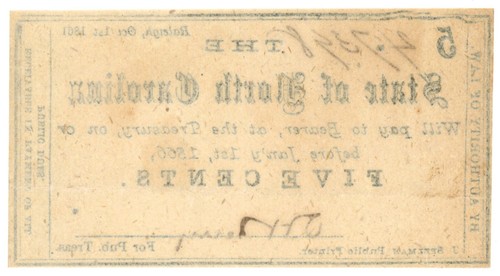 5
Raleigh, Oct 1st, 1861
THE
State of North Carolina
Will pay to Bearer, at the Treasury, on or
before Jan'y 1st, 1866,
FIVE CENTS.
For Pub. Treas.
Public Printer
BY AUTHORITY OF LAW.
RECEIVABLE IN PAYMENT OF ALL
PUBLIC DUES.